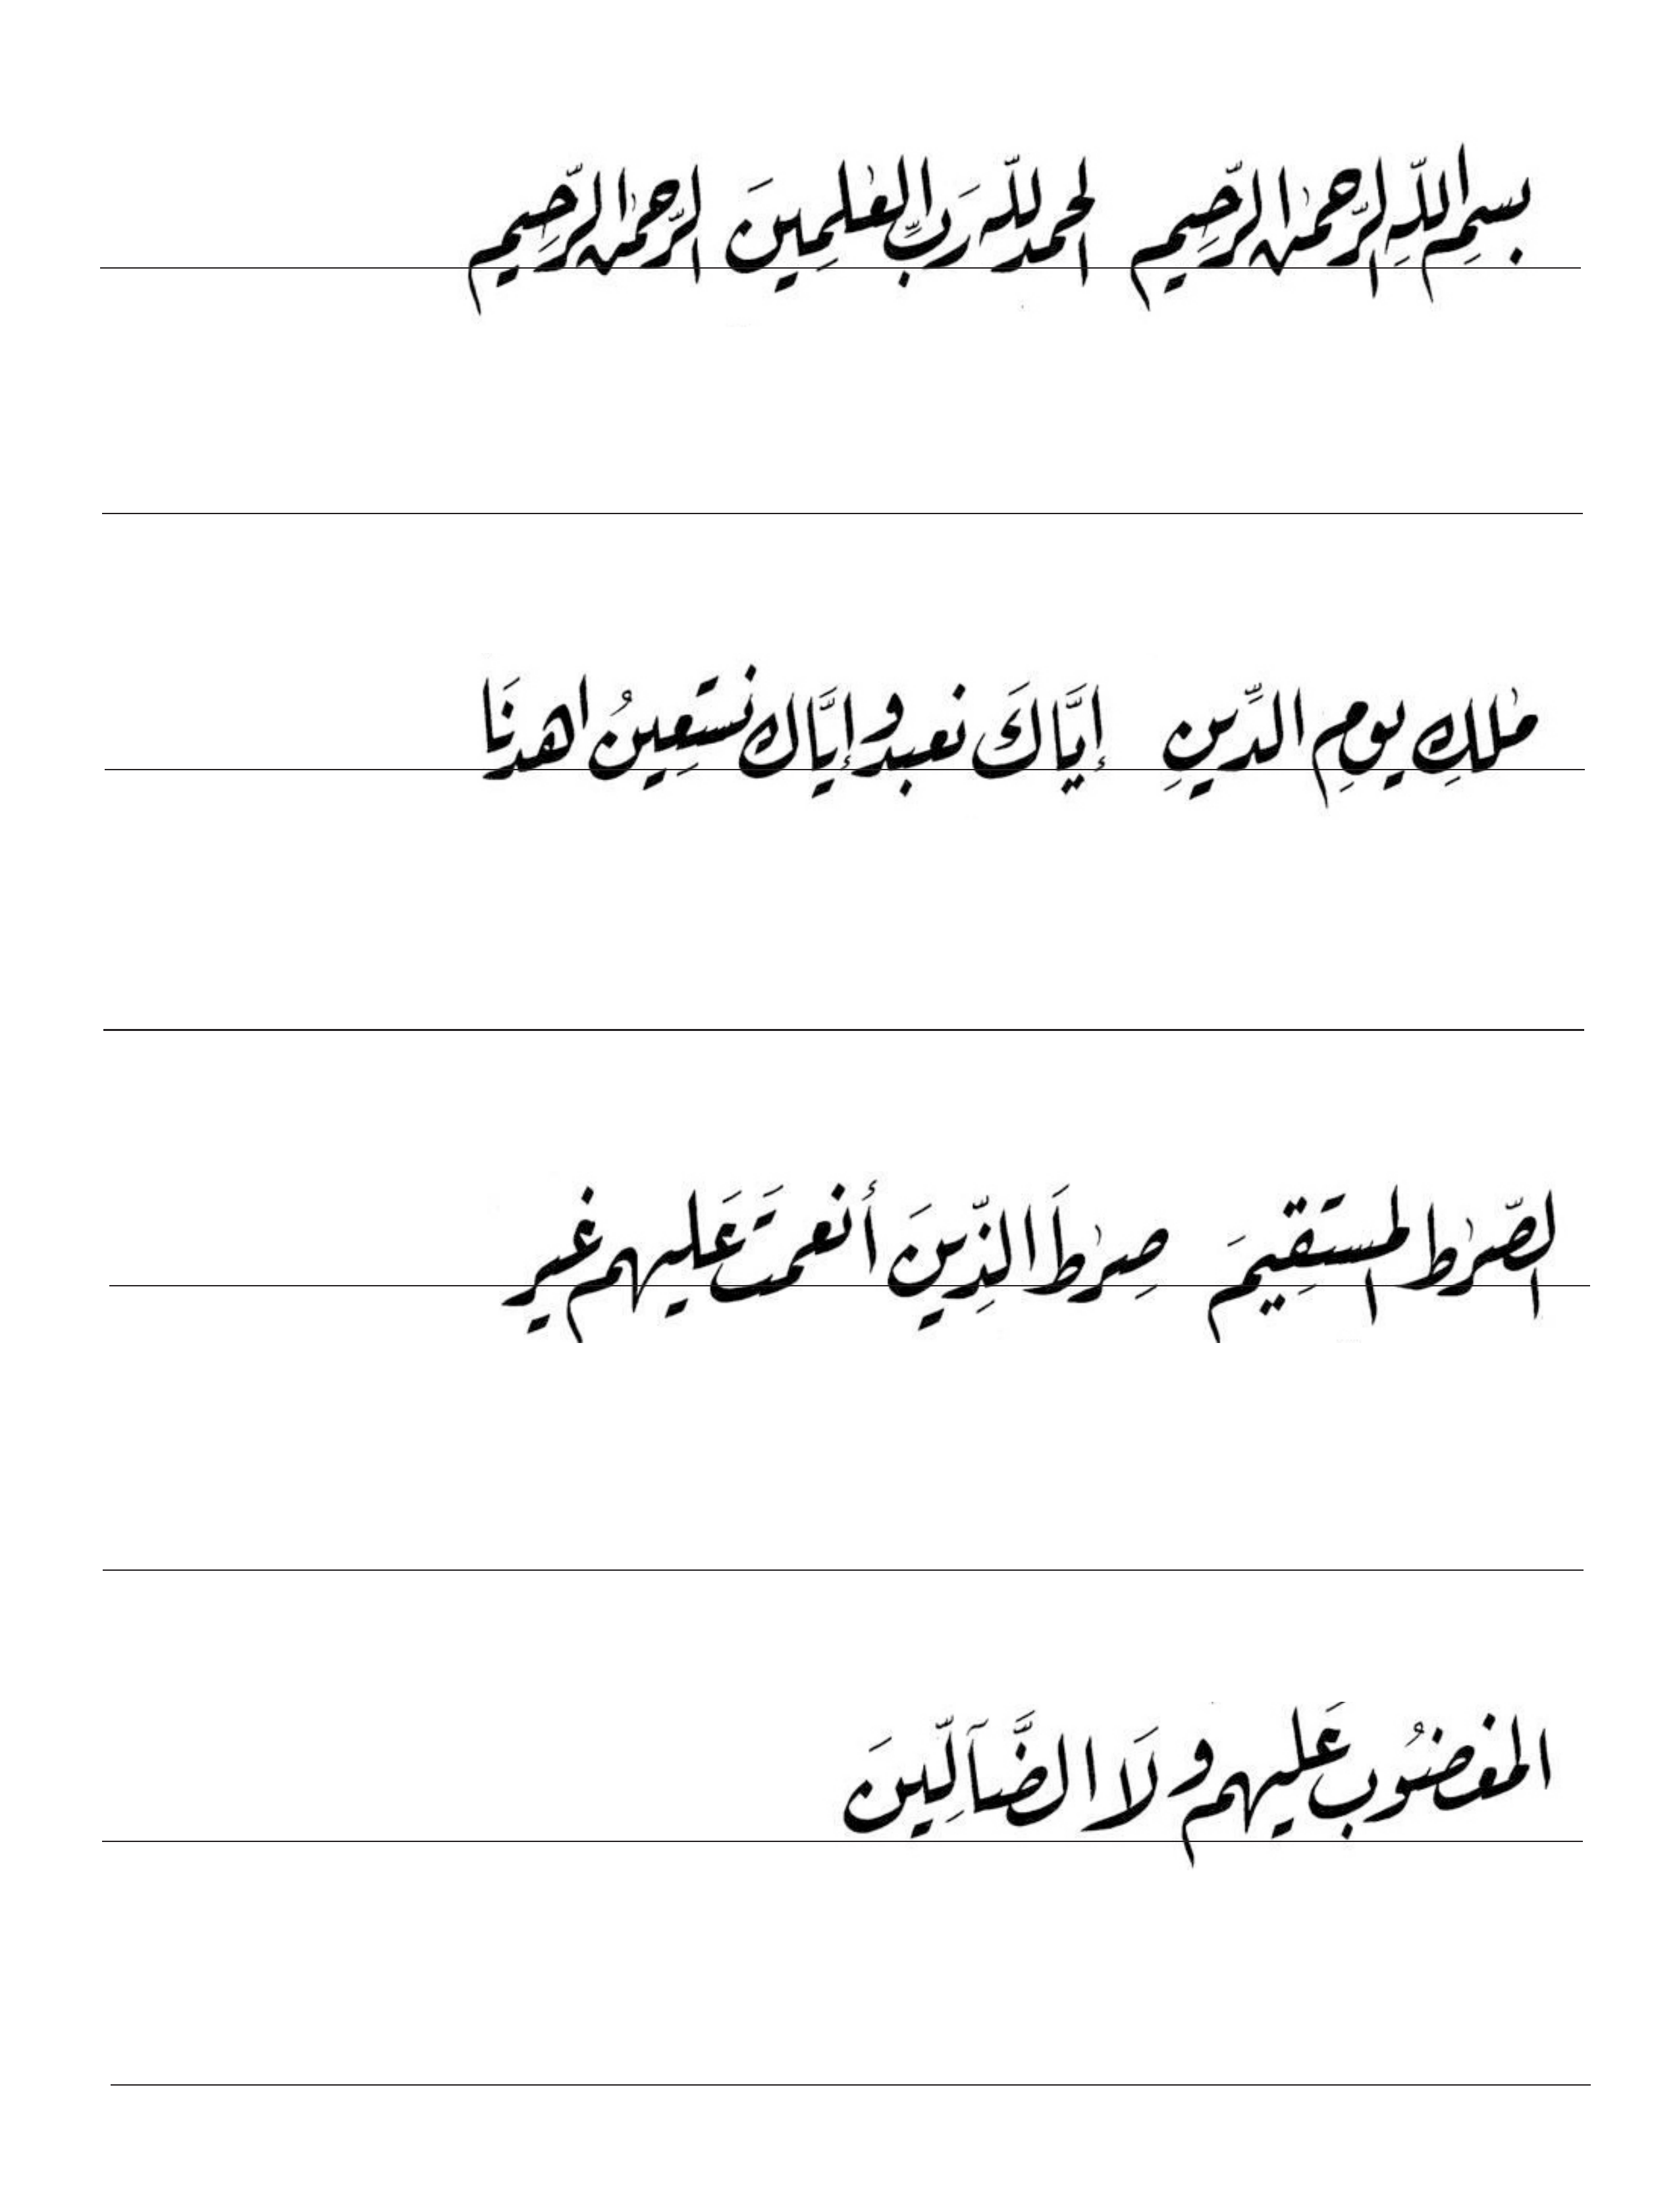 بسمِ اللّهِ الرّحمٰن الرّحِيم الحمد للّه رَبِّ العٰلمِينَ الرّحمٰن الرّحِيم
مٰلكِ يومِ الدِّينِ إيَّاكَ نعبد وإيَّاك نستَعِينُ اهدنَا
الصّرٰط المستَقِيمَ صِرٰطَ الذِّينَ أنعمتَ عَليهم غير
المغضُوب عَليهم ولَا الضَّآلِّينَ